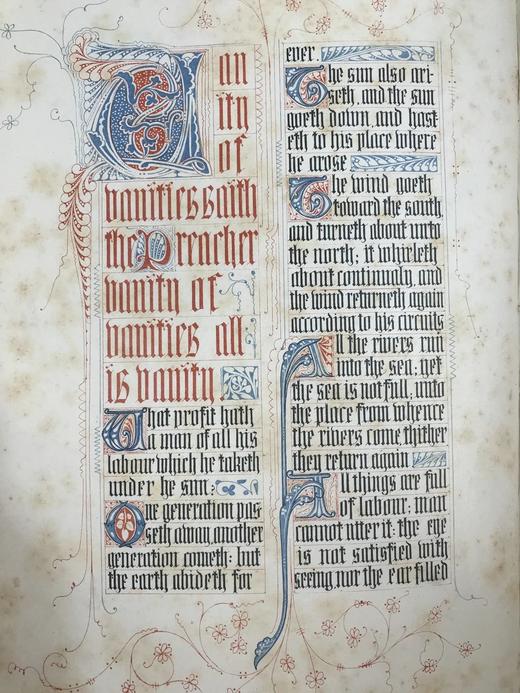 Van
ity
of
vanities saith
the Preacher
vanity of
vanities all
is vanity.
What profit hath
a man of all his
labour which he taketh
under he sun:
One generation pas
seth away, another
generation cometh: but
the earth abideth for
ever.
The sun also ari-
seth, and the sun
goeth down, and hast
eth to his place where
he arose
The wind goeth
toward the south,
and turneth about unto
the north; it whirleth
about continualy, and
the wind returneth again
according to his circuits
All the rivers run
into the sea, yet
the sea is not full, unto
the place from whence
the rivers come, thither
they return again
All things are full
of labour; man
cannot utter it: the eye
is not satisfied with
seeing, nor the ear filled